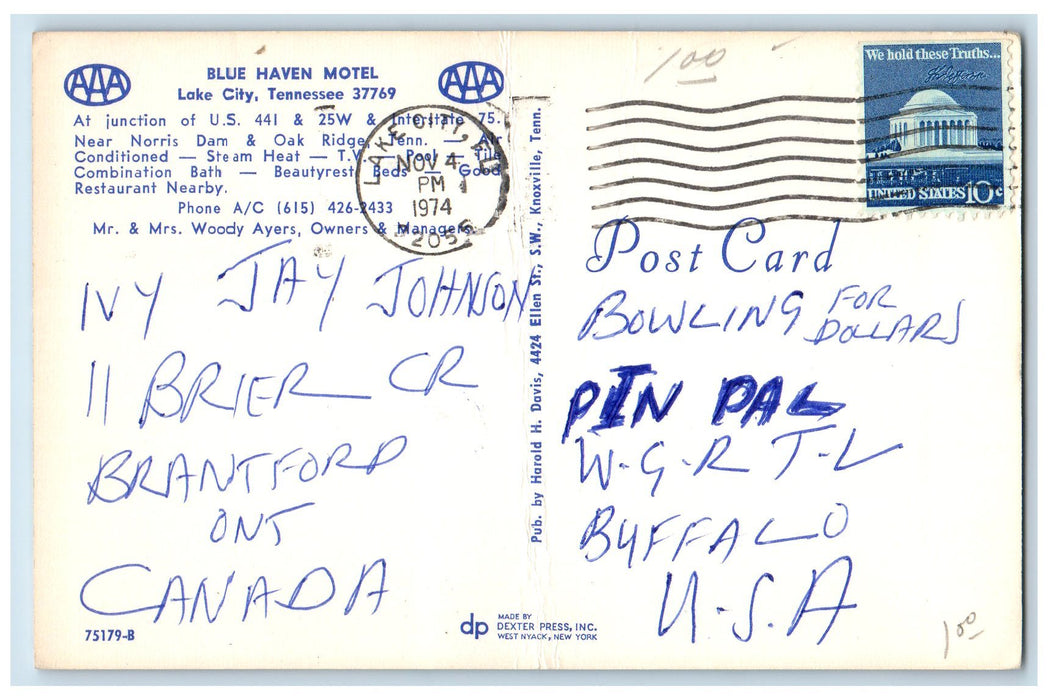 AAA
BLUE HAVEN MOTEL
AAA
Lake City, Tennessee 37769
At junction of U.S. 441 & 25W & Interstate 75.
Near Norris Dam & Oak Ridge, Tenn. — Air
Conditioned — Steam Heat — T.V. — Pool — Tile
Combination Bath — Beautyrest Beds — Good
Restaurant Nearby.
Phone A/C (615) 426-2433
Mr. & Mrs. Woody Ayers, Owners & Managers
LAKE CITY, FL
NOV 4
PM
1974
32055
1.00
We hold these Truths...
UNITED STATES 10c
Post Card
IVY JAY JOHNSON
11 BRIER CR
BRANTFORD
ONT
CANADA
Pub. by Harold H. Davis, 4424 Ellen St., S.W., Knoxville, Tenn.
BOWLING FOR
DOLLARS
PIN PAL
W-G-R T-V
BUFFALO
U.S.A
75179-B
dp
MADE BY
DEXTER PRESS, INC.
WEST NYACK, NEW YORK
1.00